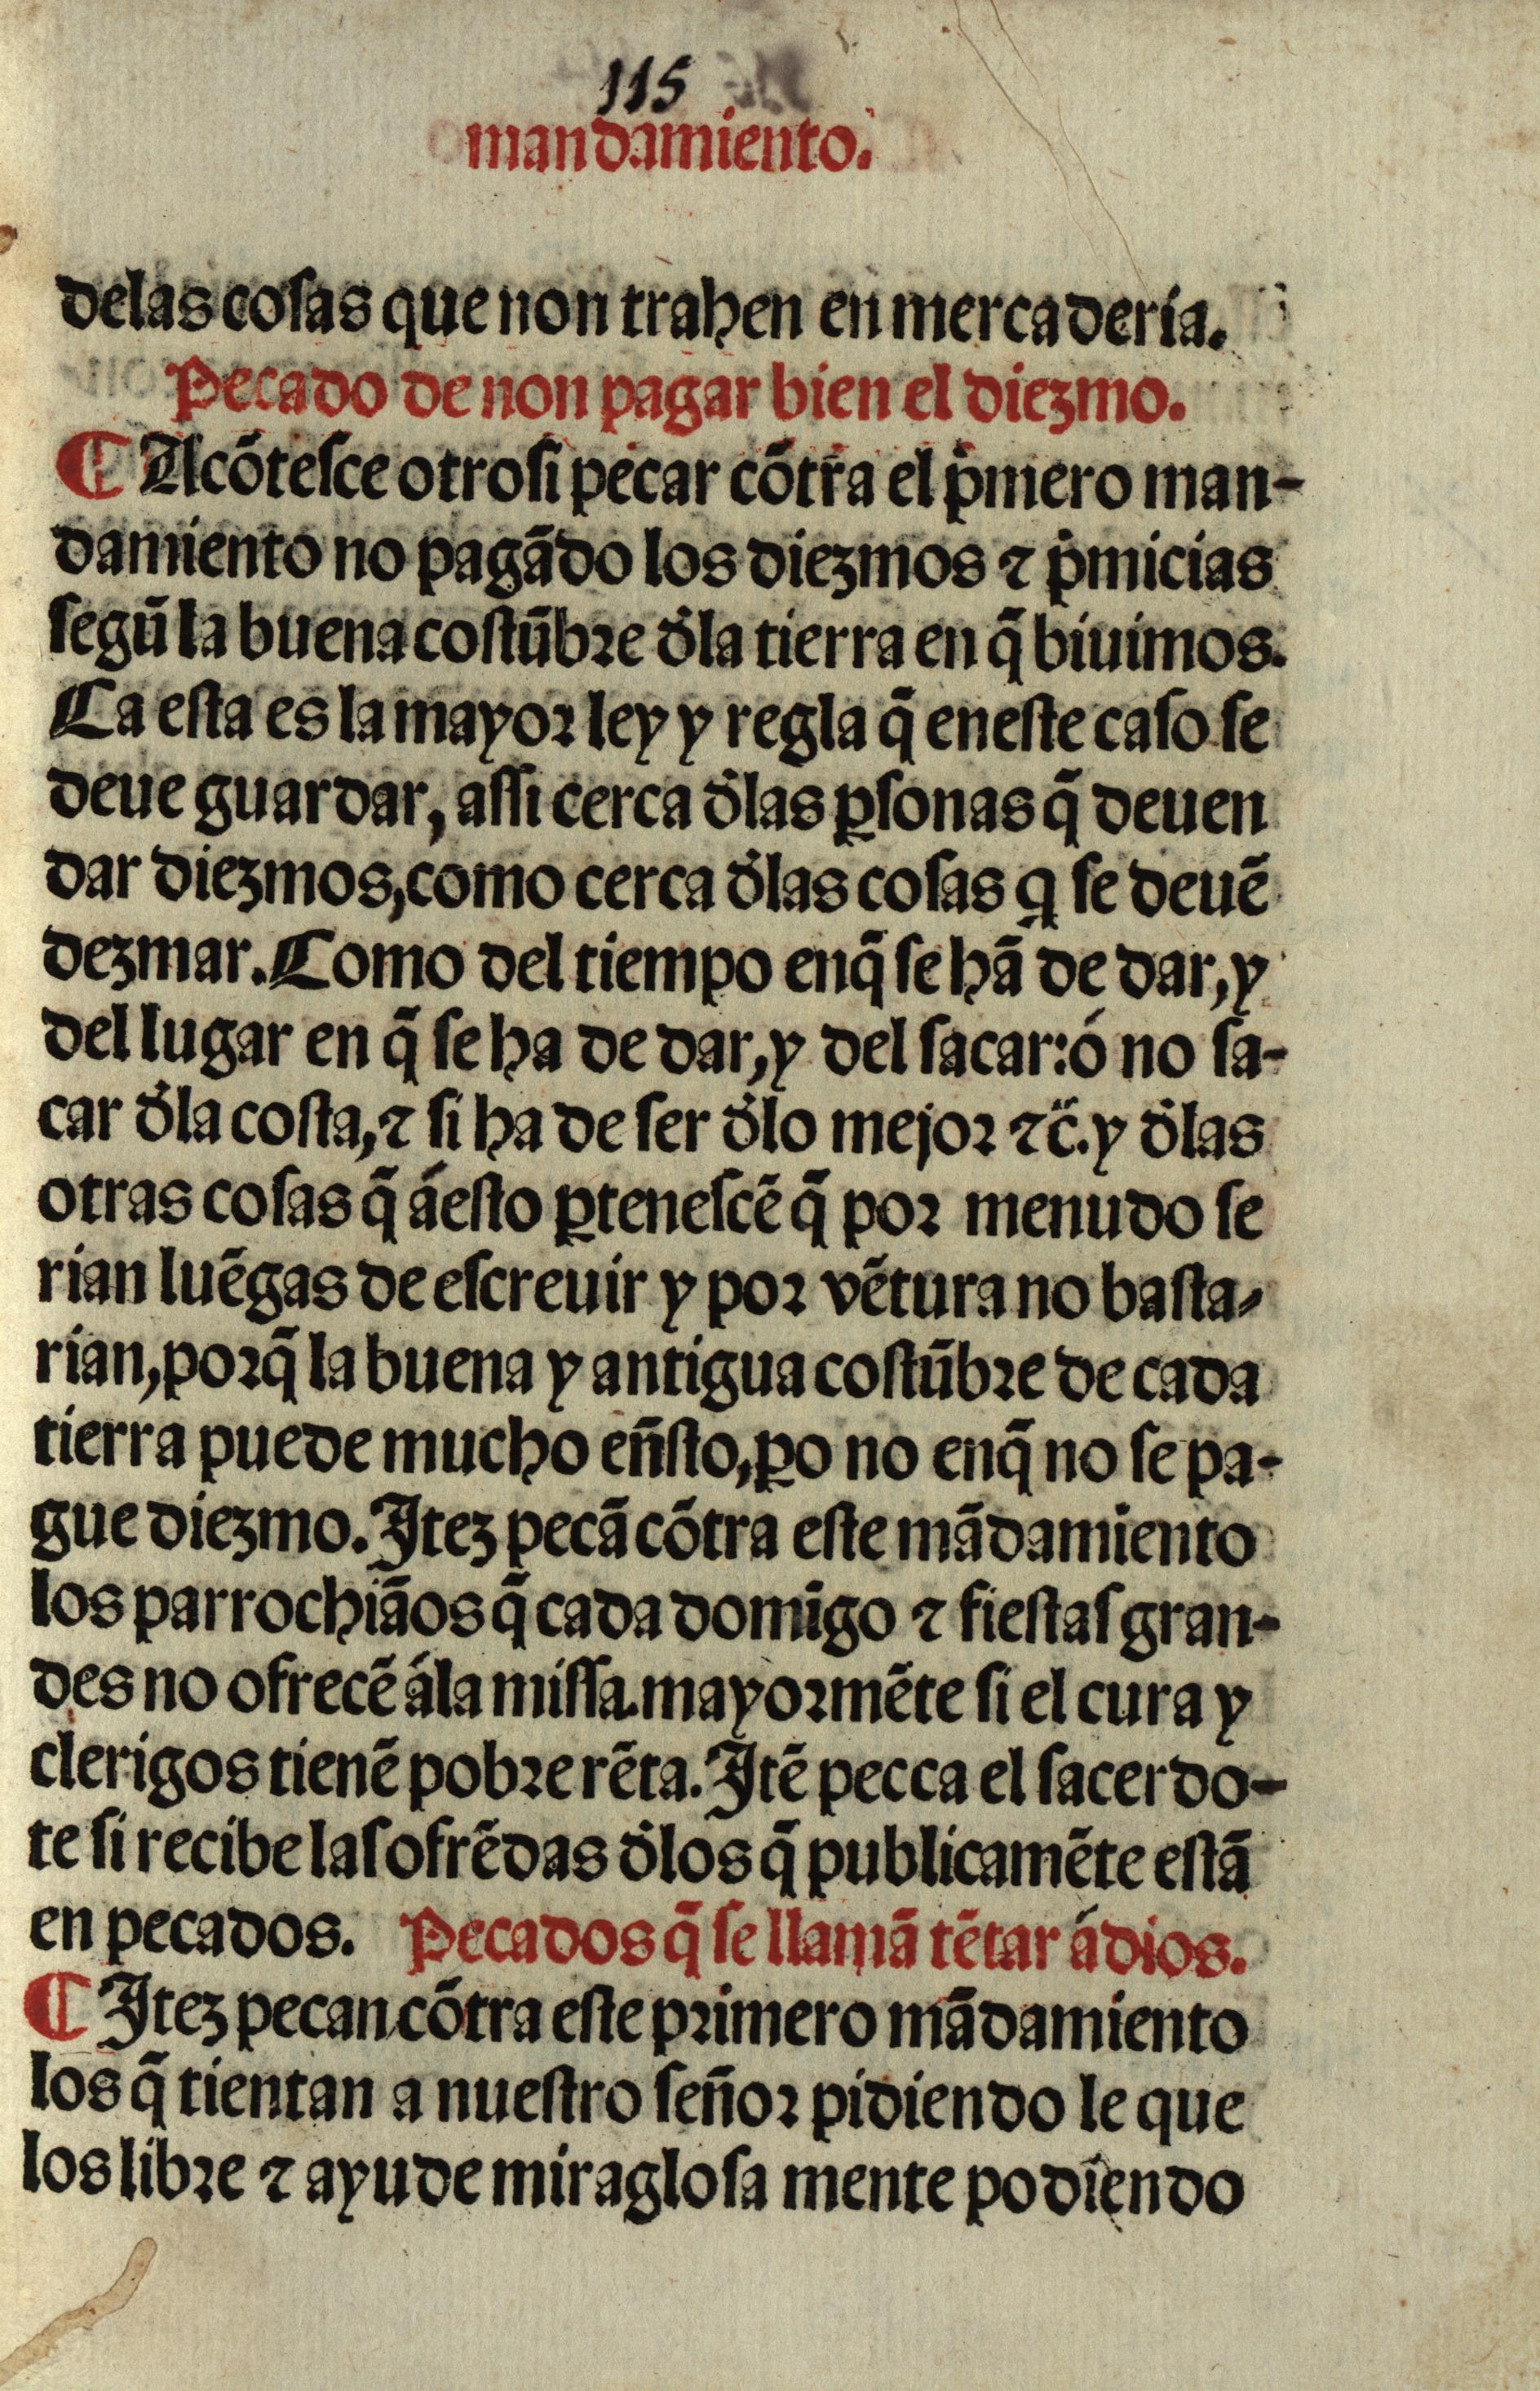 115
mandamiento.
delas cosas que non trahen en mercaderia.
Pecado de non pagar bien el diezmo.
¶ Acõtesce otrosi pecar cõtra el p̃mero man-
damiento no pagãdo los diezmos ⁊ p̃micias
segũ la buena costũbre d̃la tierra en q̃ biuimos.
Ca esta es la mayor ley y regla q̃ eneste caso se
deue guardar, assi cerca d̃las ꝑsonas q̃ deuen
dar diezmos, como cerca d̃las cosas q se deuẽ
dezmar. Como del tiempo enq̃ se hã de dar, y
del lugar en q̃ se ha de dar, y del sacar: ó no sa-
car d̃la costa, ⁊ si ha de ser d̃lo mejor ⁊c̃. y d̃las
otras cosas q̃ áesto ꝑtenescẽ q̃ por menudo se
rian luẽgas de escreuir y por vẽtura no basta-
rian, porq̃ la buena y antigua costũbre de cada
tierra puede mucho eñsto, ꝑo no enq̃ no se pa-
gue diezmo. Itez pecã cõtra este mãdamiento
los parrochiãos q̃ cada domĩgo ⁊ fiestas gran-
des no ofrecẽ ála missa. mayormẽte si el cura y
clerigos tienẽ pobre rẽta. Itẽ pecca el sacerdo-
te si recibe las ofrẽdas d̃los q̃ publicamẽte estã
en pecados. Pecados q̃ se llamã tẽtar ádios.
¶ Itez pecan cõtra este primero mãdamiento
los q̃ tientan a nuestro señor pidiendo le que
los libre ⁊ ayude miraglosa mente podiendo